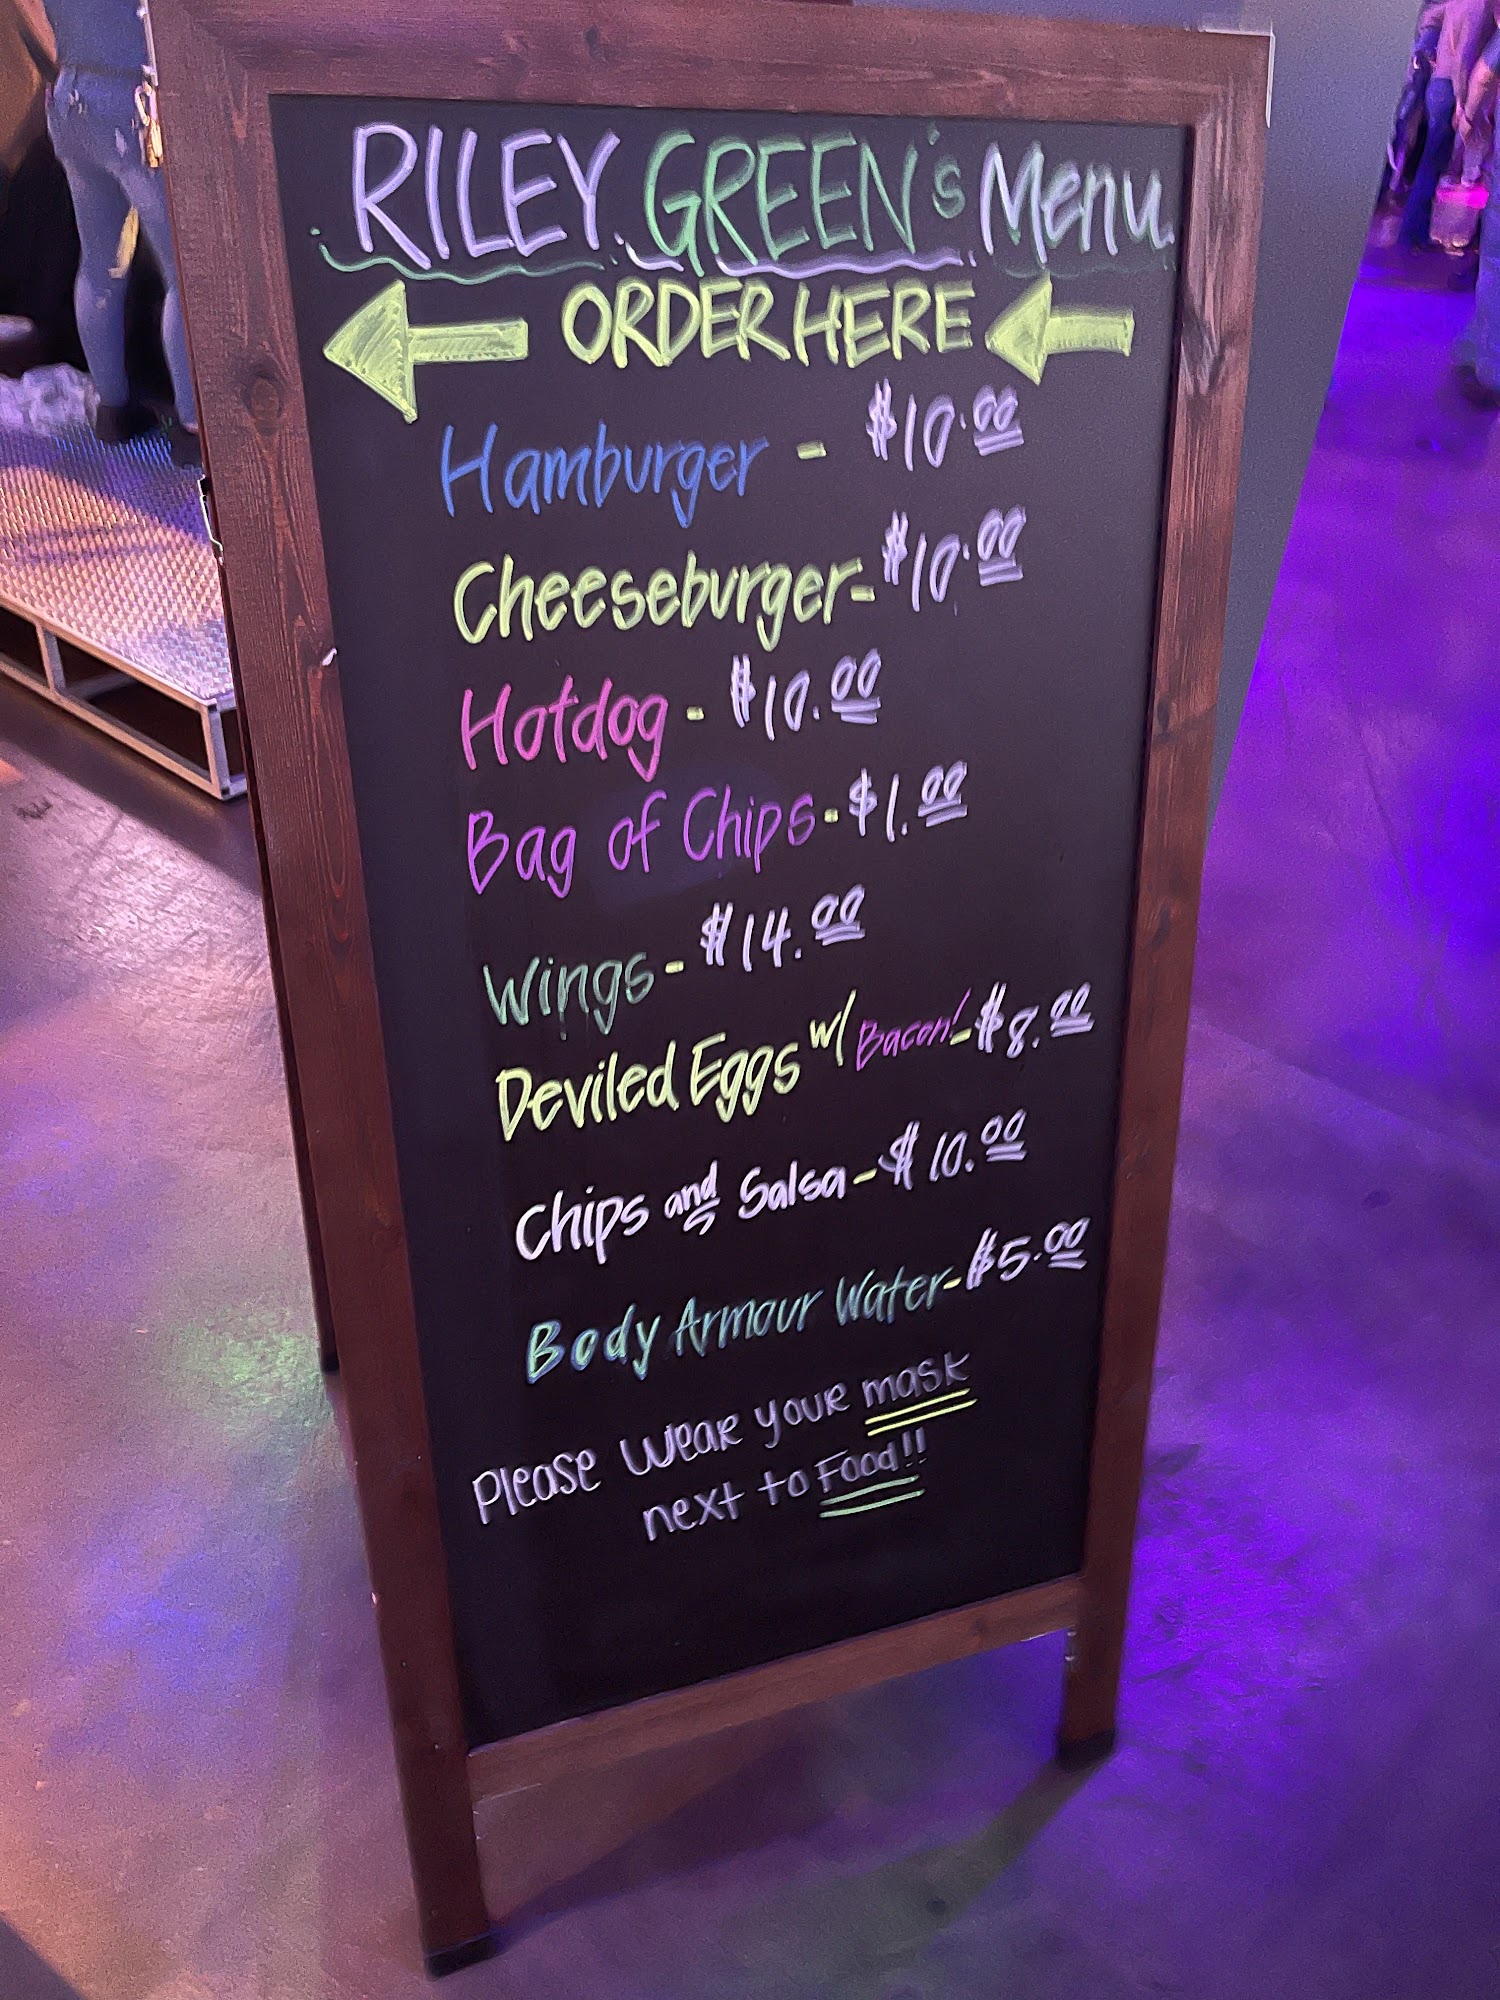 RILEY GREEN's Menu
ORDER HERE
Hamburger - $10.00
Cheeseburger - $10.00
Hotdog - $10.00
Bag of Chips - $1.00
Wings - $14.00
Deviled Eggs w/ Bacon! - $8.00
Chips and Salsa - $10.00
Body Armour Water - $5.00
Please wear your mask
next to Food!!